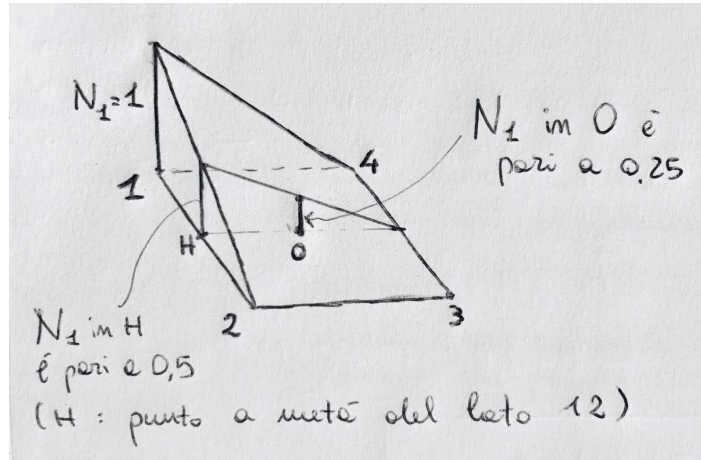 N₁=1
1
4
N₁ in O é
pari a 0,25
H
O
2
3
N₁ in H
é pari a 0,5
(H : punto a metá del lato 12)